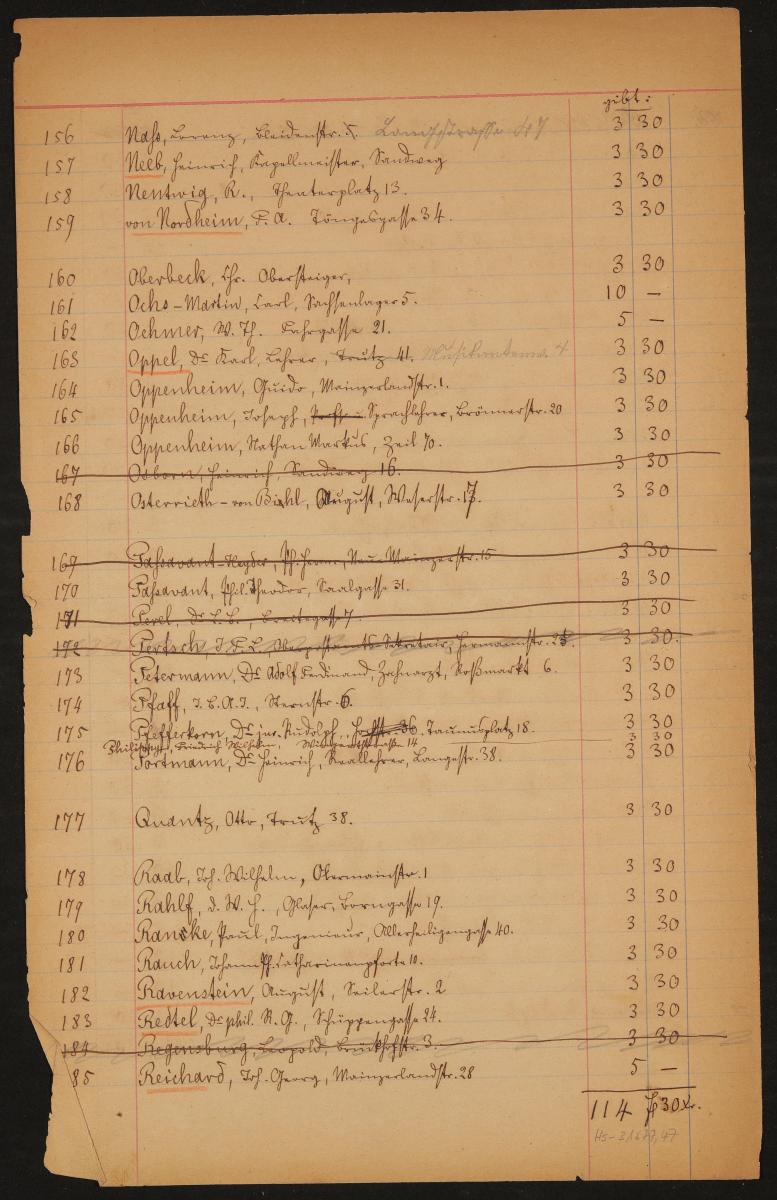 gibt:
156 Nass, Lorenz, Bleidenstr. 5. Langestrasse 47 3 30
157 Neeb, Heinrich, Kapellmeister, Sandweg 3 30
158 Nentwig, R., Theaterplatz 13. 3 30
159 von Nordheim, F. A. Töngesgasse 34. 3 30
160 Oberbeck, Chr. Obersteiger, 3 30
161 Ochs-Martin, Carl, Sachsenlager 5. 10 —
162 Oehmer, W. Th. Fahrgasse 21. 5 —
163 Oppel, Dr Karl, Lehrer, Trutz 41. 3 30
164 Oppenheim, Guido, Mainzerlandstr. 1. 3 30
165 Oppenheim, Joseph, Sprachlehrer, Brönnerstr. 20 3 30
166 Oppenheim, Nathan Markus, Zeil 70. 3 30
167 Osborn, Heinrich, Sandweg 16. 3 30
168 Osterrieth-von Bihl, August, Weserstr. 17. 3 30
169 Passavant-Heyder, Ph. Herm., Neue Mainzerstr. 15 3 30
170 Passavant, Phil. Theodor, Saalgasse 31. 3 30
171 Perel, Dr L. L., Breitegasse 7. 3 30
172 Pertsch, J. F. L. Oberpostamts-Sekretair, Hermannstr. 3 30.
173 Petermann, Dr Adolf Ferdinand, Zahnarzt, Roßmarkt 6. 3 30
174 Pfaff, J. C. A. J., Sternstr. 6. 3 30
175 Pfefferkorn, Dr jur. Rudolph, Hochstr. 36. Taunusplatz 18. 3 30
Friedrich Wilhelm, 14 3 30
176 Portmann, Dr Heinrich, Reallehrer, Langestr. 38. 3 30
177 Quantz, Otto, Trutz 38. 3 30
178 Raab, Joh. Wilhelm, Obermainstr. 1 3 30
179 Rahlf, d. W. H., Glaser, Borngasse 19. 3 30
180 Ranske, Paul, Ingenieur, Allerheiligengasse 40. 3 30
181 Rauch, Johann Ph. Catharinenpforte 10. 3 30
182 Ravenstein, August, Seilerstr. 2 3 30
183 Redtel, Dr phil. R. G., Schüppengasse 24. 3 30
184 Regensburg, Leopold, Brückhofstr. 3. 3 30
85 Reichard, Joh. Georg, Mainzerlandstr. 28 5 —
114 fl 30 Xr.